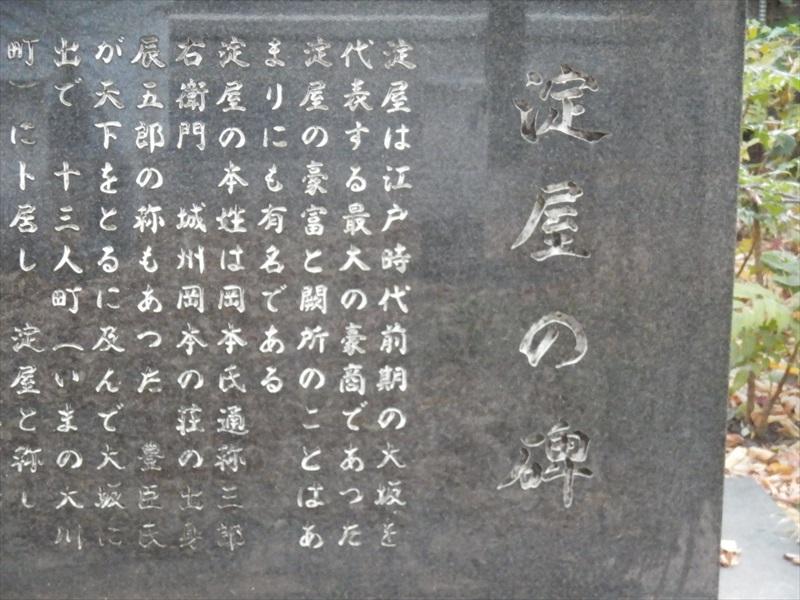 淀屋の碑
淀屋は江戸時代前期の大坂を
代表する最大の豪商であつた
淀屋の豪富と闕所のことはあ
まりにも有名である
淀屋の本姓は岡本氏通称三郎
右衛門　城州岡本の荘の出身
辰五郎の称もあつた　豊臣氏
が天下をとるに及んで大坂に
出で　十三人町（いまの大川
町）に卜居し　淀屋と称し